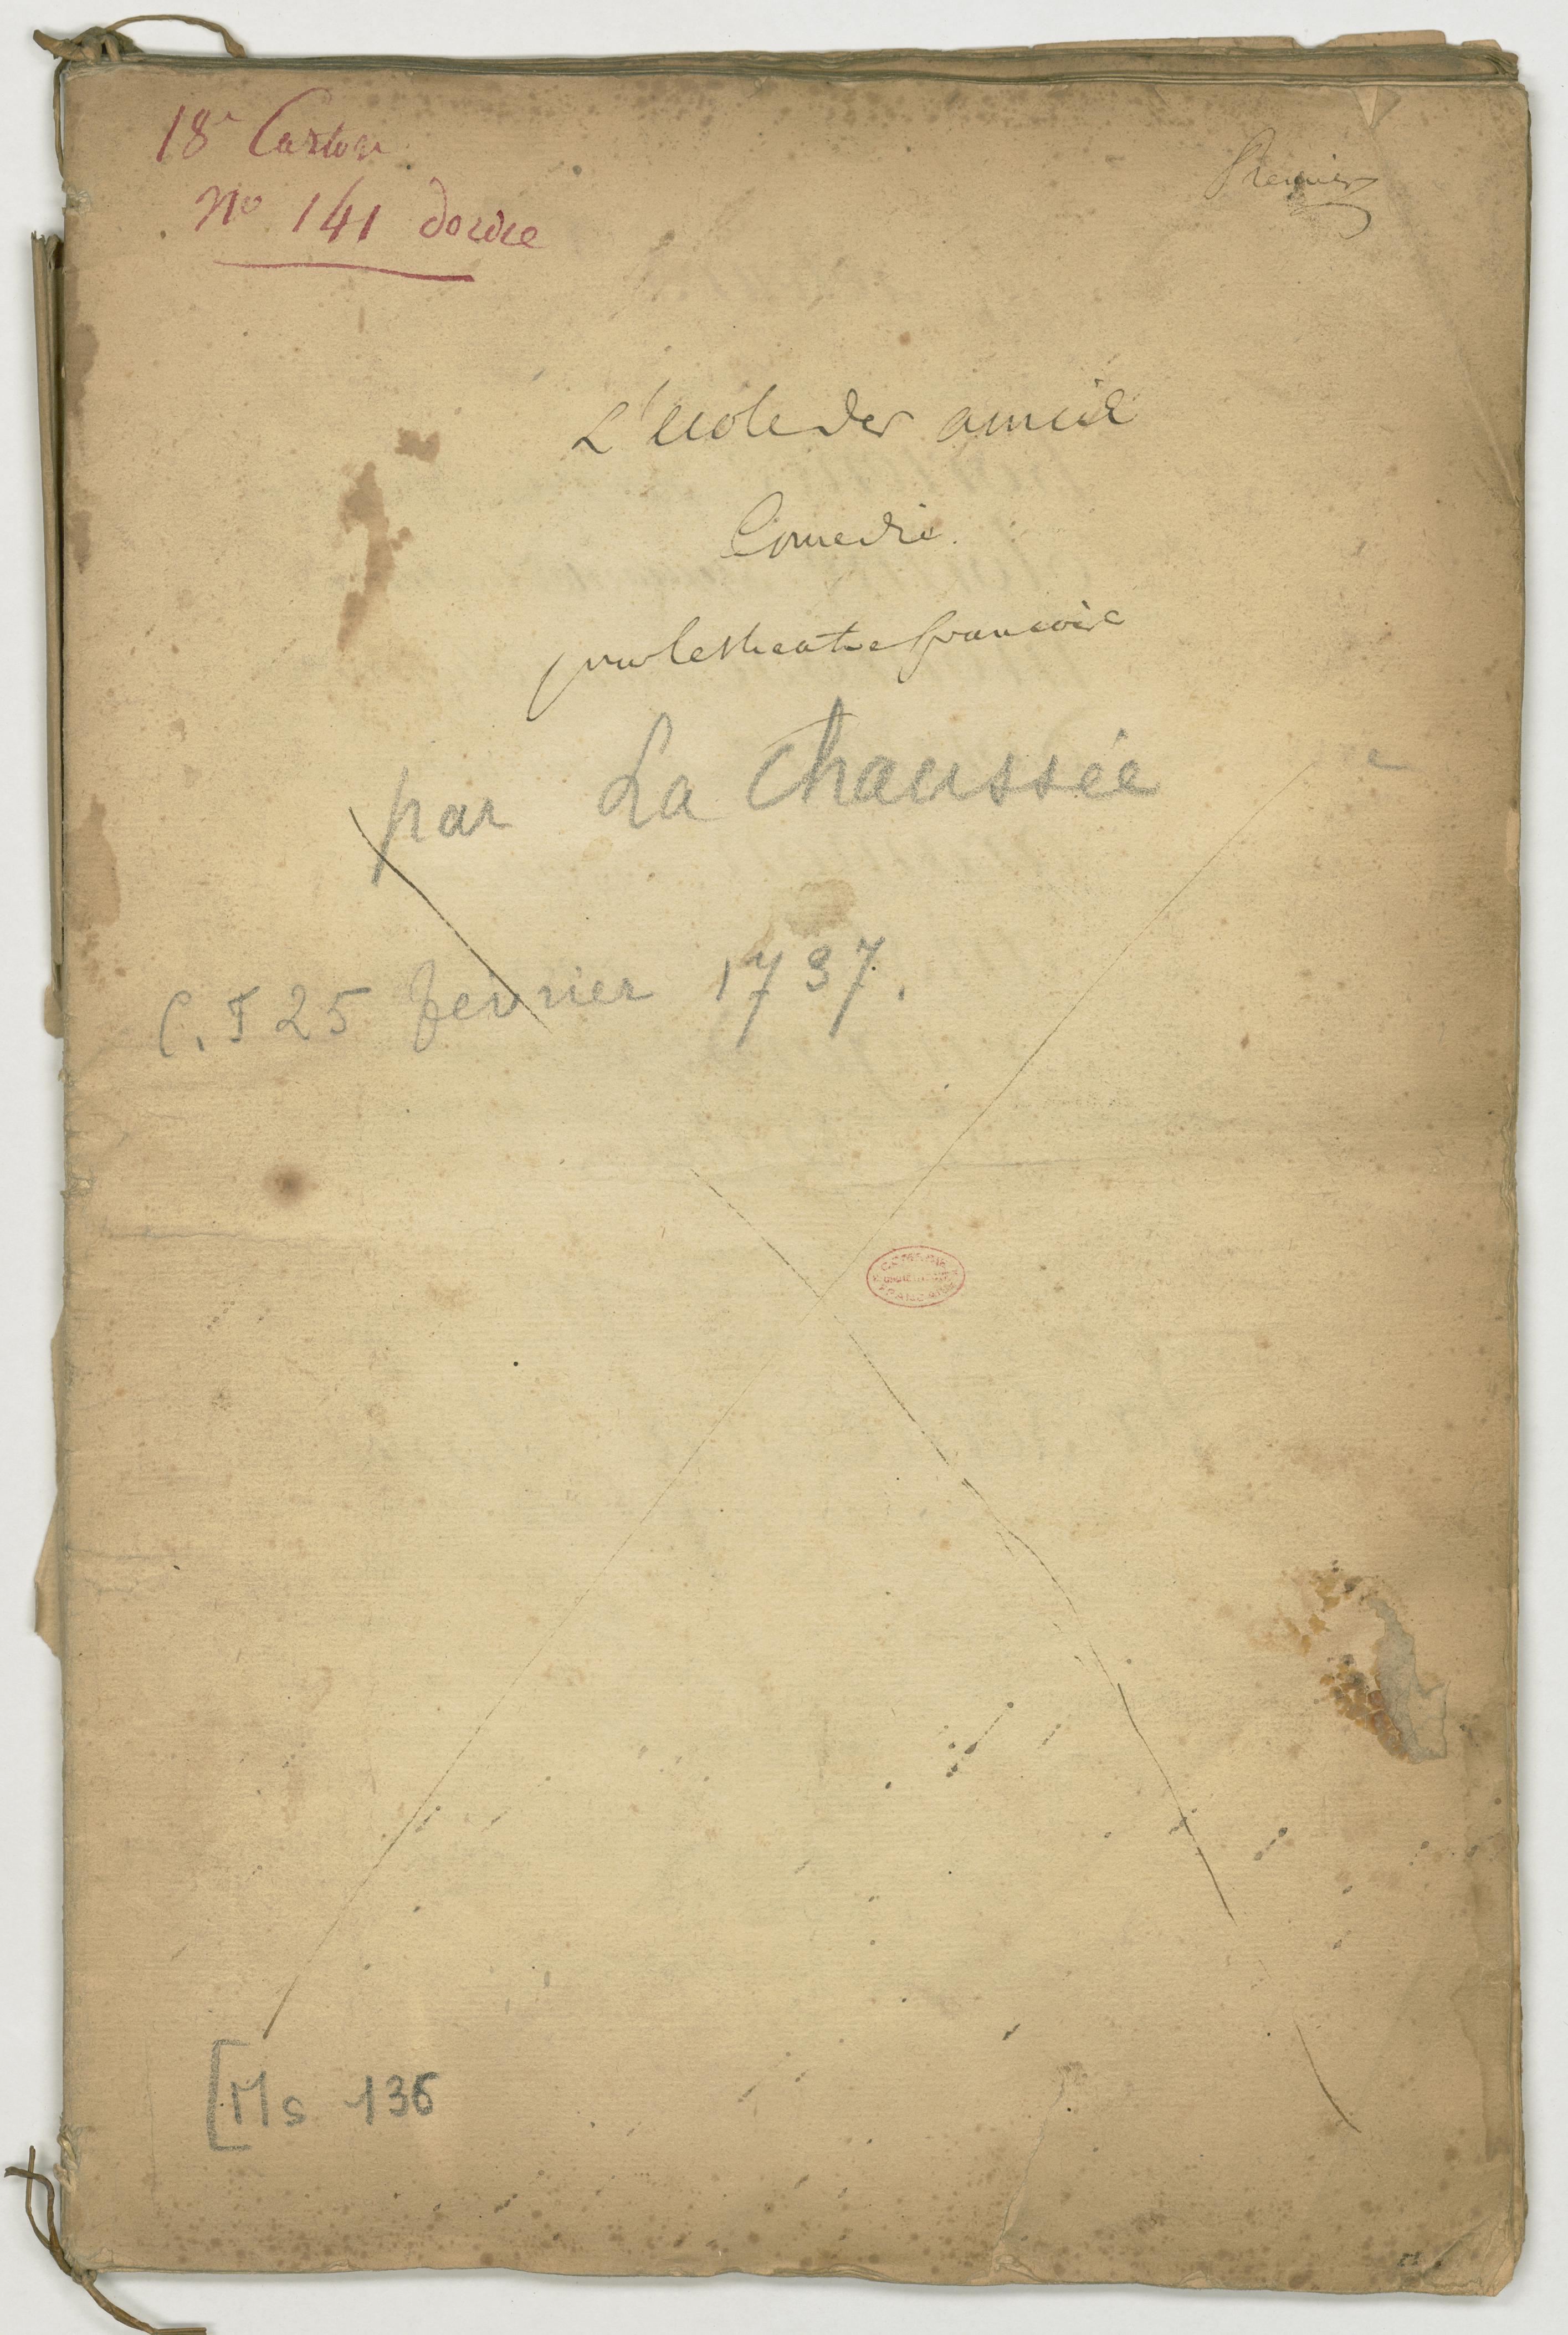 18e Carton
No 141 dordre
Premier
L'ecole des amis
Comedie.
pour le theatre francois
par La Chaussée
C. F 25 fevrier 1737.
COMEDIE
FRANCAISE
[Ms 136